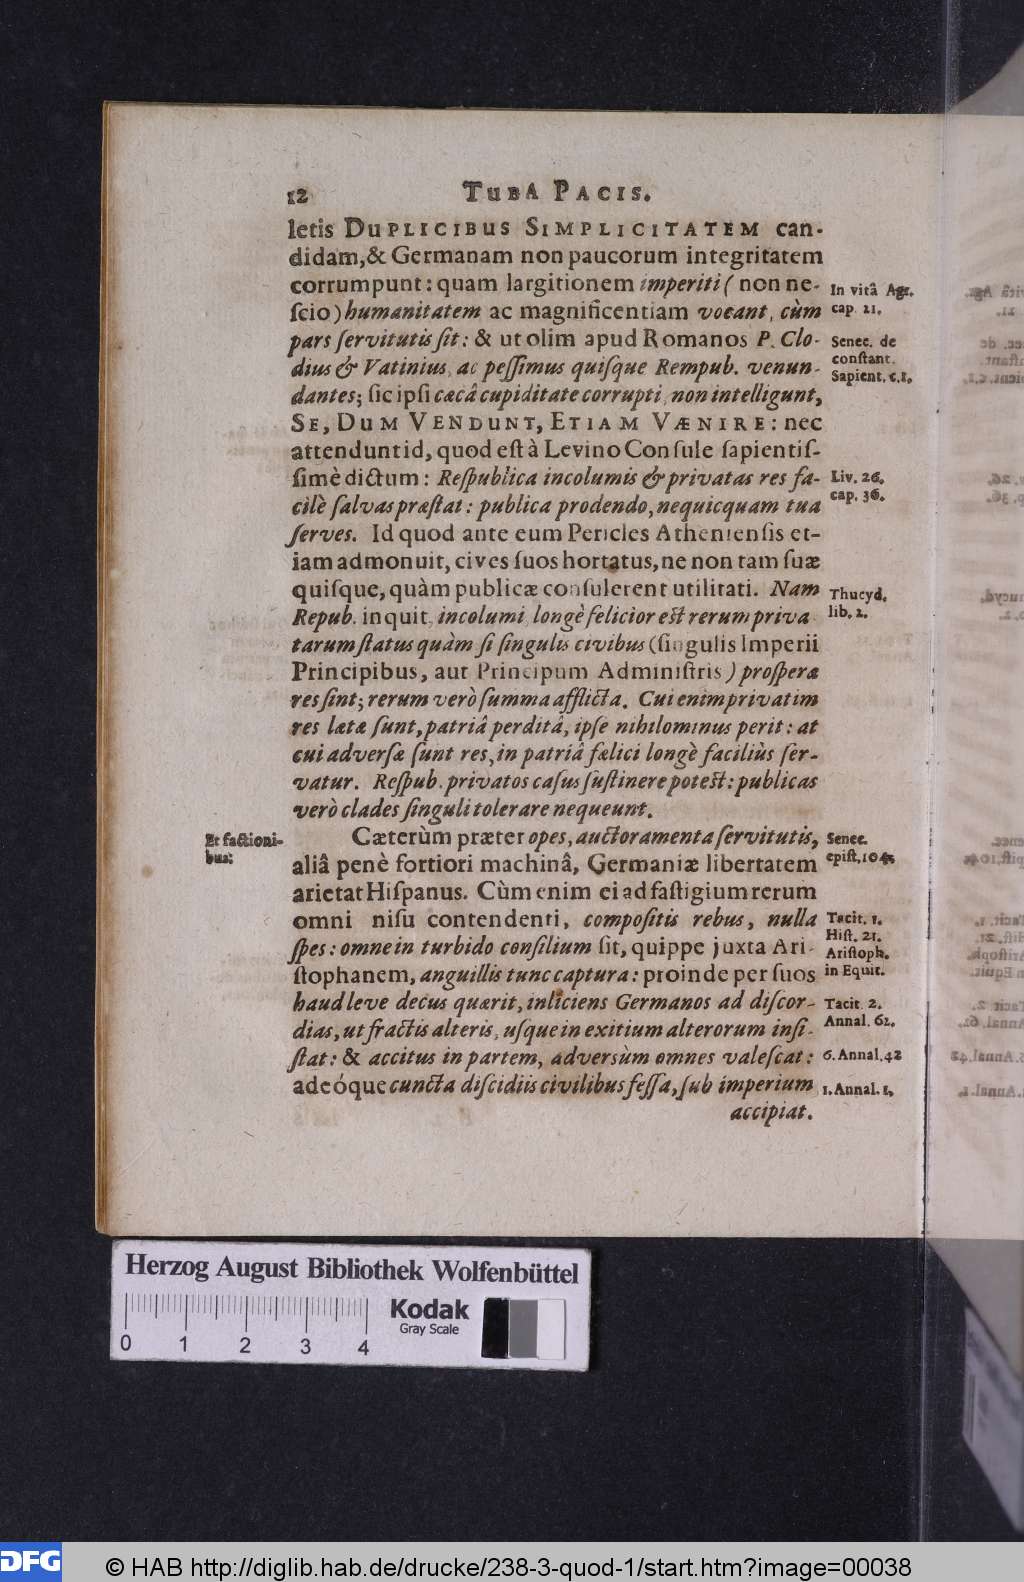 12 TUBA PACIS.
letis DUPLICIBUS SIMPLICITATEM can-
didam, & Germanam non paucorum integritatem
corrumpunt: quam largitionem imperiti ( non ne-
ſcio ) humanitatem ac magnificentiam vocant, cùm
pars ſervitutis ſit: & ut olim apud Romanos P. Clo-
dius & Vatinius, ac peſſimus quiſque Rempub. venun-
dantes; ſic ipſi cæcâ cupiditate corrupti, non intelligunt,
SE, DUM VENDUNT, ETIAM VÆNIRE: nec
attendunt id, quod eſt à Levino Conſule ſapientiſ-
ſimè dictum: Reſpublica incolumis & privatas res fa-
cilè ſalvas præſtat: publica prodendo, nequicquam tua
ſerves. Id quod ante eum Pericles Athenienſis et-
iam admonuit, cives ſuos hortatus, ne non tam ſuæ
quiſque, quàm publicæ conſulerent utilitati. Nam
Repub. inquit, incolumi, longè felicior eſt rerum priva
tarum ſtatus quàm ſi ſingulis civibus (ſingulis Imperii
Principibus, aut Principum Adminiſtris ) proſperæ
res ſint; rerum verò ſumma afflicta. Cui enim privatim
res lætæ ſunt, patriâ perditâ, ipſe nihilominus perit: at
cui adverſæ ſunt res, in patriâ fælici longè faciliùs ſer-
vatur. Reſpub. privatos caſus ſuſtinere poteſt: publicas
verò clades ſinguli tolerare nequeunt.
Cæterùm præter opes, auctoramenta ſervitutis,
aliâ penè fortiori machinâ, Germaniæ libertatem
arietat Hiſpanus. Cùm enim ei ad faſtigium rerum
omni niſu contendenti, compoſitis rebus, nulla
ſpes: omne in turbido conſilium ſit, quippe juxta Ari-
ſtophanem, anguillis tunc captura: proinde per ſuos
haud leve decus quærit, inliciens Germanos ad diſcor-
dias, ut fractis alteris, uſque in exitium alterorum inſi-
ſtat: & accitus in partem, adverſùm omnes valeſcat:
adeóque cuncta diſcidiis civilibus feſſa, ſub imperium
accipiat.
In vitâ Agr.
cap. 21.
Senec. de
conſtant.
Sapient. c.1.
Liv. 26.
cap. 36.
Thucyd.
lib. 2.
Et factioni-
bus:
Senec.
epiſt. 104
Tacit. 1.
Hiſt. 21.
Ariſtoph.
in Equit.
Tacit. 2.
Annal. 62.
6. Annal. 42
1. Annal. 1.
Herzog August Bibliothek Wolfenbüttel
0 1 2 3 4
Kodak
Gray Scale
DFG
© HAB http://diglib.hab.de/drucke/238-3-quod-1/start.htm?image=00038